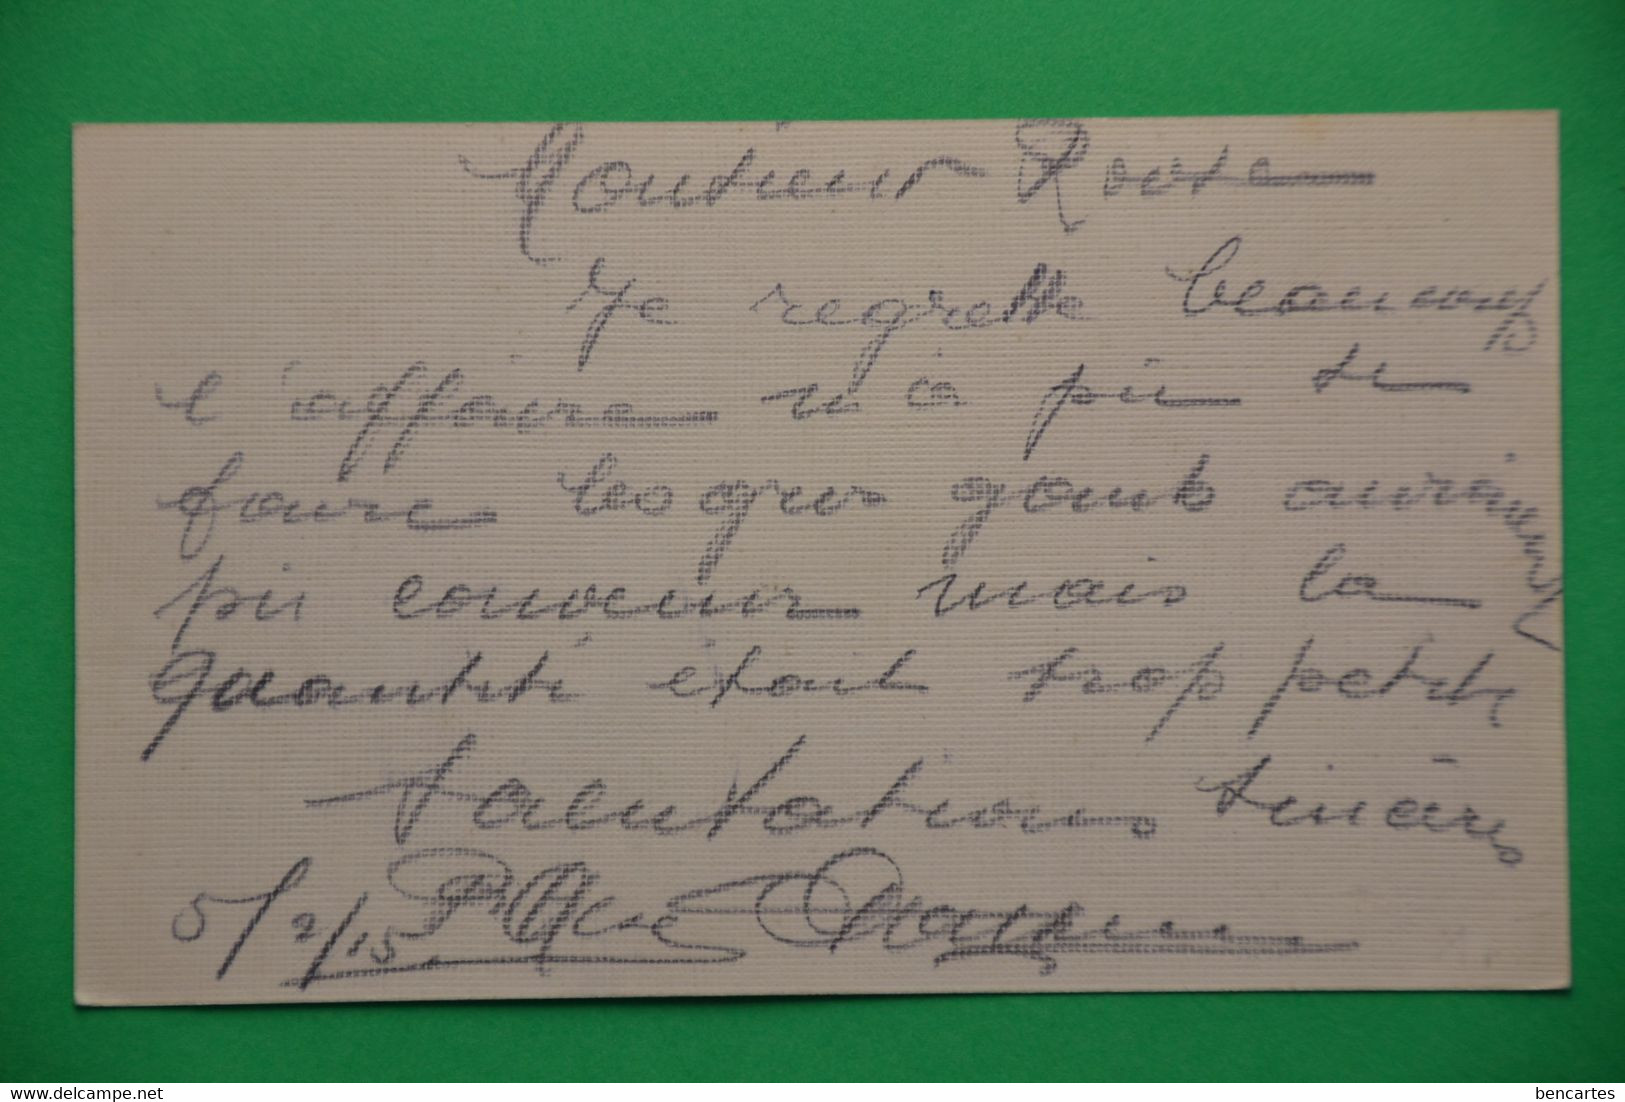 Monsieur
Je regrette beaucoup
l'affaire n'a pu se
faire les gros gants auraient
pu convenir mais la
quantité était trop petite
salutations sincères
5/2/15
delcampe.net
bencartes